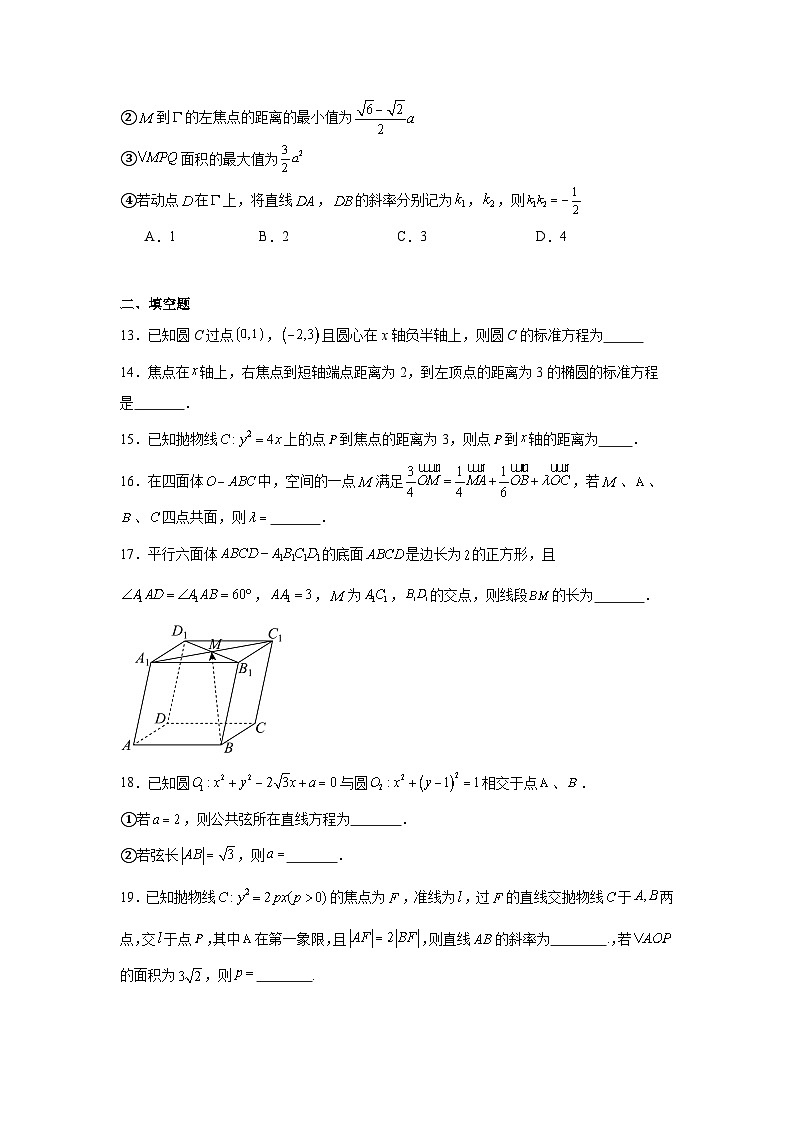 ②M到Γ的左焦点的距离的最小值为(√6−√2)/2 a
③VMPQ面积的最大值为3/2 a²
④若动点D在Γ上,将直线DA,DB的斜率分别记为k₁,k₂,则k₁k₂=−1/2
A.1 B.2 C.3 D.4
二、填空题
13.已知圆C过点(0,1),(−2,3)且圆心在x轴负半轴上,则圆C的标准方程为______
14.焦点在x轴上,右焦点到短轴端点距离为2,到左顶点的距离为3的椭圆的标准方程
是_______.
15.已知抛物线C:y²=4x上的点P到焦点的距离为3,则点P到x轴的距离为_____.
16.在四面体O−ABC中,空间的一点M满足3/4 OM=1/4 MA+1/6 OB+λOC,若M、A、
B、C四点共面,则λ=_______.
17.平行六面体ABCD−A₁B₁C₁D₁的底面ABCD是边长为2的正方形,且
∠A₁AD=∠A₁AB=60°,AA₁=3,M为A₁C₁,B₁D₁的交点,则线段BM的长为_______.
D₁ M C₁
A₁ B₁
D C
A B
18.已知圆O₁:x²+y²−2√3x+a=0与圆O₂:x²+(y−1)²=1相交于点A、B.
①若a=2,则公共弦所在直线方程为_______.
②若弦长|AB|=√3,则a=_______.
19.已知抛物线C:y²=2px(p>0)的焦点为F,准线为l,过F的直线交抛物线C于A,B两
点,交l于点P,其中A在第一象限,且|AF|=2|BF|,则直线AB的斜率为________.,若VAOP
的面积为3√2,则p=________.